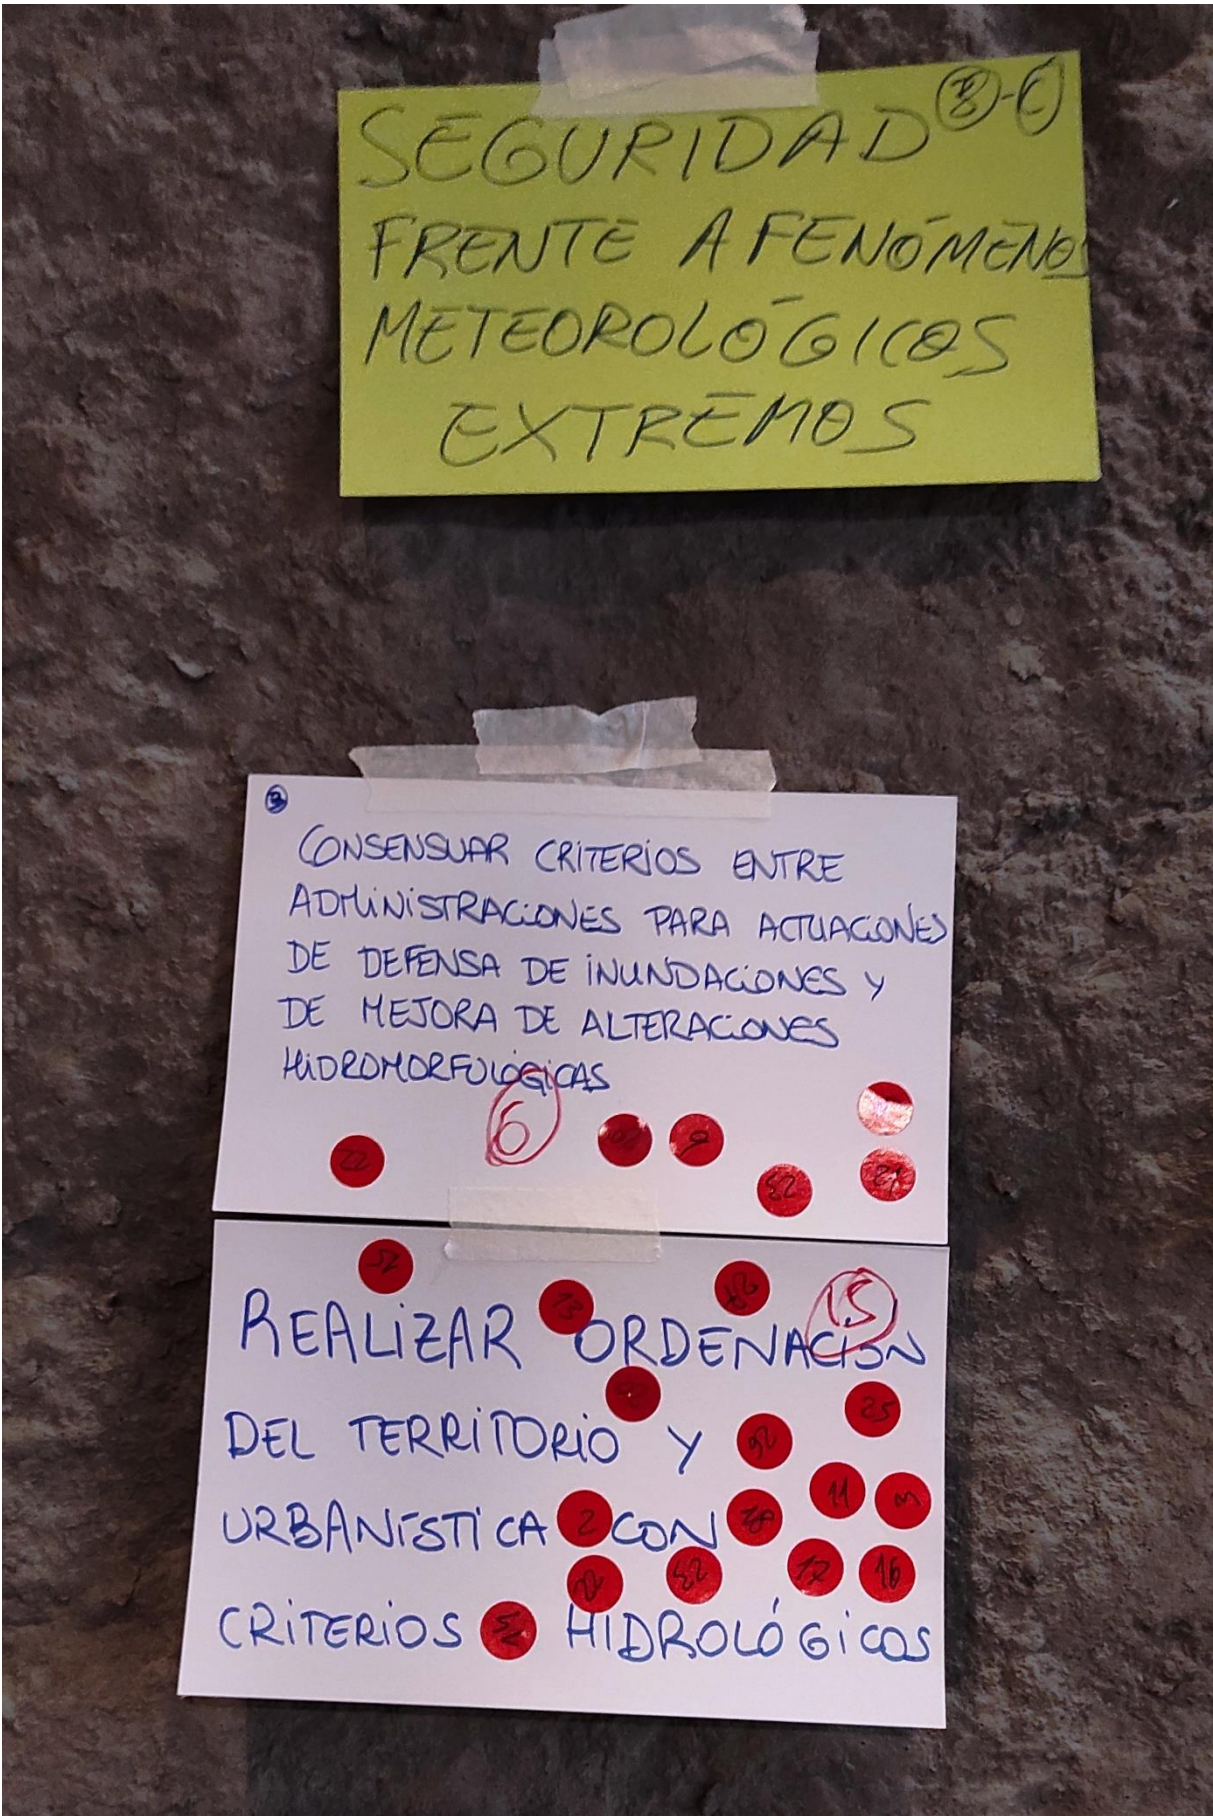 SEGURIDAD
FRENTE A FENÓMENOS
METEOROLÓGICOS
EXTREMOS
3
CONSENSUAR CRITERIOS ENTRE
ADMINISTRACIONES PARA ACTUACIONES
DE DEFENSA DE INUNDACIONES Y
DE MEJORA DE ALTERACIONES
HIDROMORFOLÓGICAS
6
22
9
32
21
13
15
REALIZAR ORDENACIÓN
25
DEL TERRITORIO Y
11
URBANÍSTICA 2 CON
32 17 16
CRITERIOS HIDROLÓGICOS